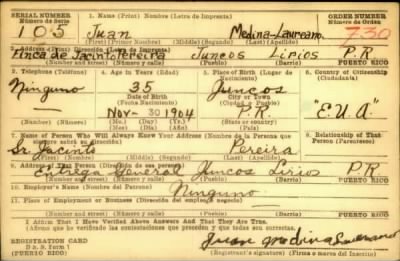 SERIAL NUMBER 1. Name (Print) Nombre (Letra de Imprenta) ORDER NUMBER
Número de Serie Número de Orden
105 Juan Medina-Laureano 730
(First) Primer Nombre (Middle) (Segundo) (Last) Apellido
2. Address (Print) Dirección (Letra de Imprenta)
Finca de Jacinto Pereira Juncos Lirios P.R.
(Number and street) (Número y calle) (Town) (Pueblo) PUERTO RICO
3. Telephone (Teléfono) 4. Age in Years (Edad) 5. Place of Birth (Lugar de Nacimiento) 6. Country of Citizenship (Ciudadanía)
Ninguno 35 Juncos
Date of Birth City or Town
(Fecha Nacimiento) (Ciudad o Pueblo)
Nov- 30 1904 P.R. "E.U.A."
(Mo.) (Day) (Yr.) (State or country)
(Mes) (Día) (Año) (Estado o país)
7. Name of Person Who Will Always Know Your Address (Nombre de la Persona que siempre sabrá su dirección) 8. Relationship of That Person (Parentesco)
Sr. Jacinto Pereira
(First) (Primero) (Middle) (Segundo) (Last) (Apellido)
9. Address of That Person (Dirección de esa persona)
Entrega General Juncos Lirios P.R.
(Number and street) (Número y calle) (Town) (Pueblo) PUERTO RICO
10. Employer's Name (Nombre del Patrono)
Ninguno
11. Place of Employment or Business (Dirección del empleo o negocio)
(Number and street) (Número y calle) (Town) (Pueblo) PUERTO RICO
I Affirm That I Have Verified Above Answers And That They Are True.
(Afirmo que he verificado las contestaciones que preceden y que todas son correctas.
REGISTRATION CARD
D. S. Form 1 Juan Medina Laureano
(Registrant's signature) (Firma del Inscrito)